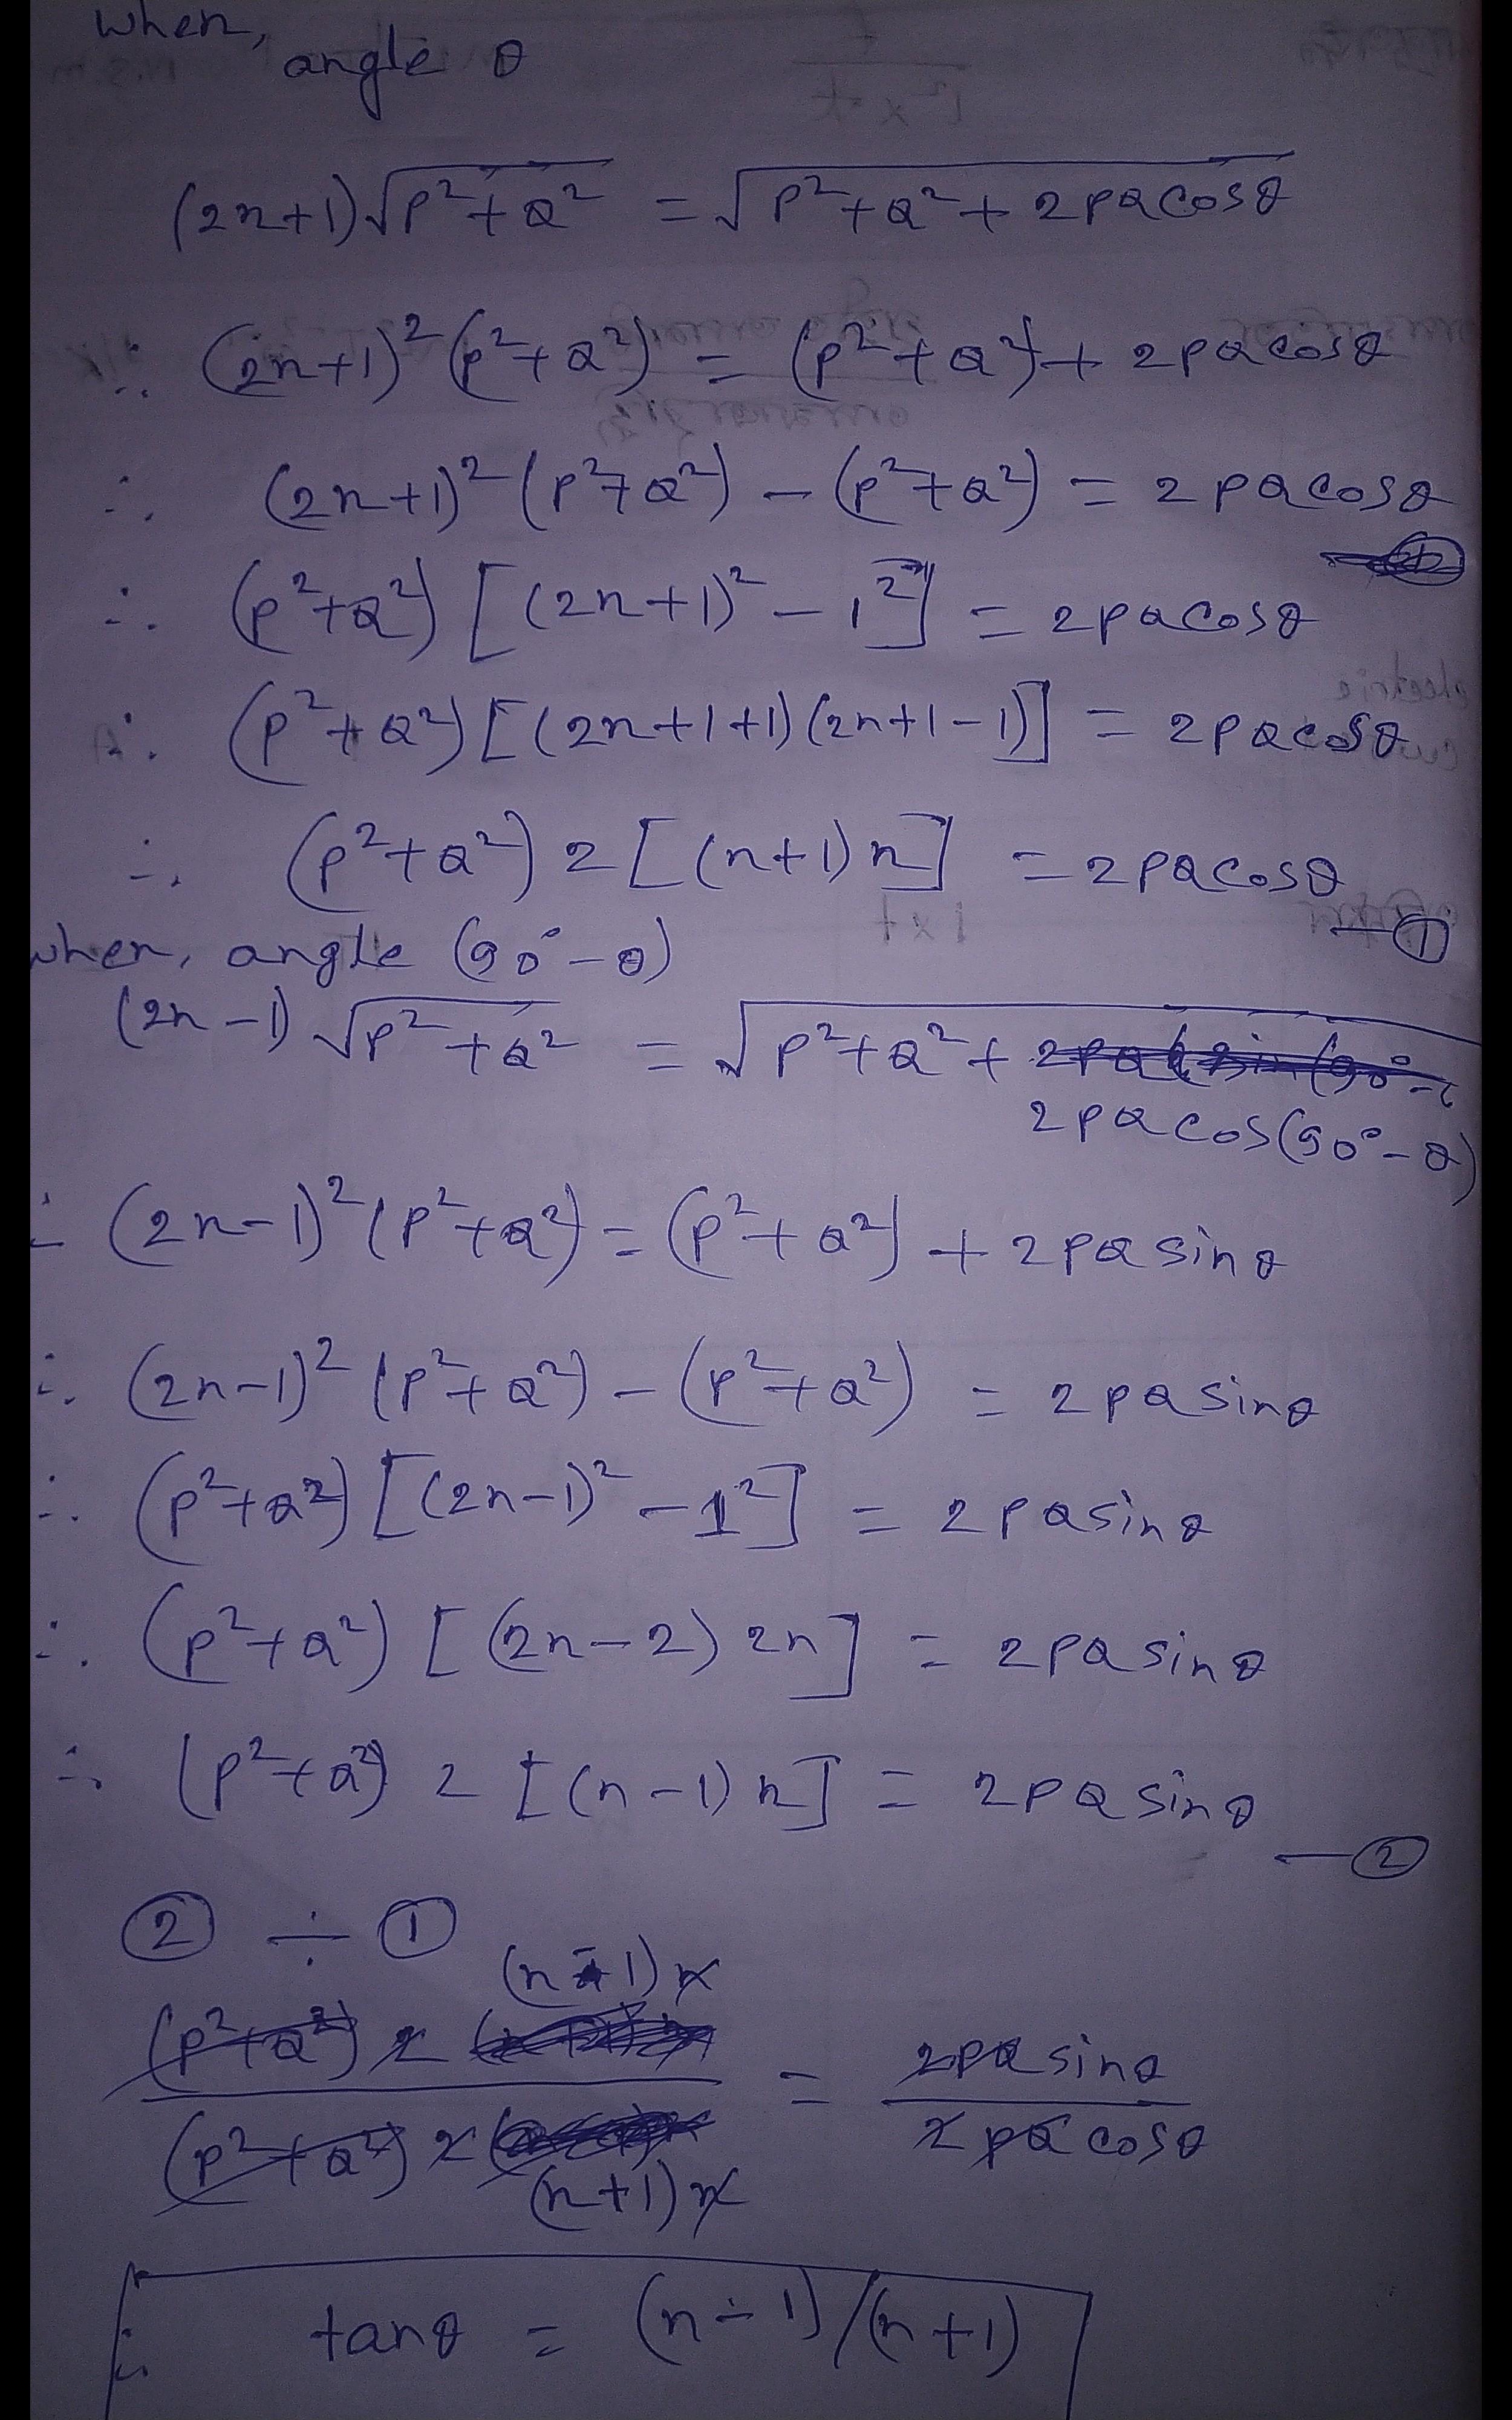 when, angle θ
(2n+1)√P²+Q² = √P²+Q²+2PQcosθ
∴ (2n+1)²(P²+Q²) = (P²+Q²)+2PQcosθ
∴ (2n+1)²(P²+Q²) - (P²+Q²) = 2PQcosθ
∴ (P²+Q²)[(2n+1)² - 1²] = 2PQcosθ
∴ (P²+Q²)[(2n+1+1)(2n+1-1)] = 2PQcosθ
∴ (P²+Q²)2[(n+1)n] = 2PQcosθ
—①
when, angle (90°-θ)
(2n-1)√P²+Q² = √P²+Q²+
2PQcos(90°-θ)
∴ (2n-1)²(P²+Q²) = (P²+Q²)+2PQsinθ
∴ (2n-1)²(P²+Q²) - (P²+Q²) = 2PQsinθ
∴ (P²+Q²)[(2n-1)² - 1²] = 2PQsinθ
∴ (P²+Q²)[(2n-2)2n] = 2PQsinθ
∴ (P²+Q²)2[(n-1)n] = 2PQsinθ
—②
② ÷ ①
(n-1)n
(P²+Q²)2 = 2PQsinθ
(P²+Q²)2 2PQcosθ
(n+1)n
∴ tanθ = (n-1)/(n+1)